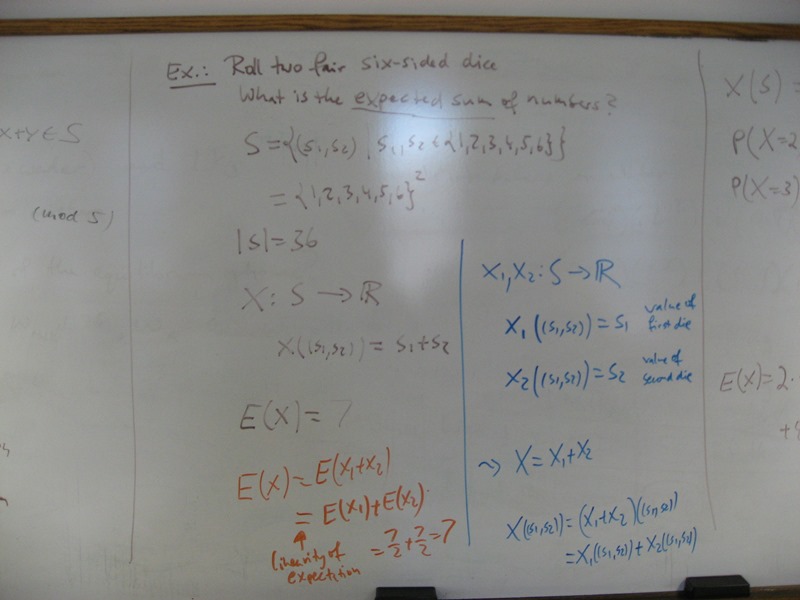 x+y ∈ S
(mod 5)
Ex.: Roll two fair six-sided dice
What is the expected sum of numbers?
S = {(s1,s2) , s1, s2 ∈ {1,2,3,4,5,6}}
= {1,2,3,4,5,6}²
|S| = 36
X: S → ℝ
X((s1,s2)) = s1+s2
E(X) = 7
E(X) = E(X1+X2)
= E(X1)+E(X2)
linearity of
expectation
= 7/2 + 7/2 = 7
X1, X2 : S → ℝ
X1((s1,s2)) = s1 value of
first die
X2((s1,s2)) = s2 value of
second die
⇝ X = X1+X2
X((s1,s2)) = (X1+X2)((s1,s2))
= X1((s1,s2)) + X2((s1,s2))
X(S) =
P(X=2
P(X=3)
E(X) = 2·